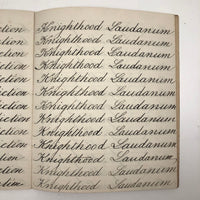 ction Knighthood Laudanum
ction Knighthood Laudanum
ction Knighthood Laudanum
ction Knighthood Laudanum
ction Knighthood Laudanum
ction Knighthood Laudanum
ction Knighthood Laudanum
ction Knighthood Laudanum
ction Knighthood Laudanum
ction Knighthood Laudanum
ction Knighthood Laudanum
ction Knighthood Laudanum